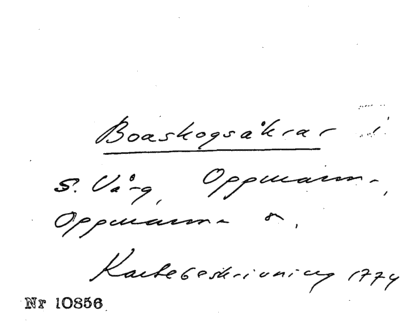 Boaskogsåkrar i
S. Vång, Oppmanna,
Oppmanna s.
Kartebeskrivning 1774
Nr 10856